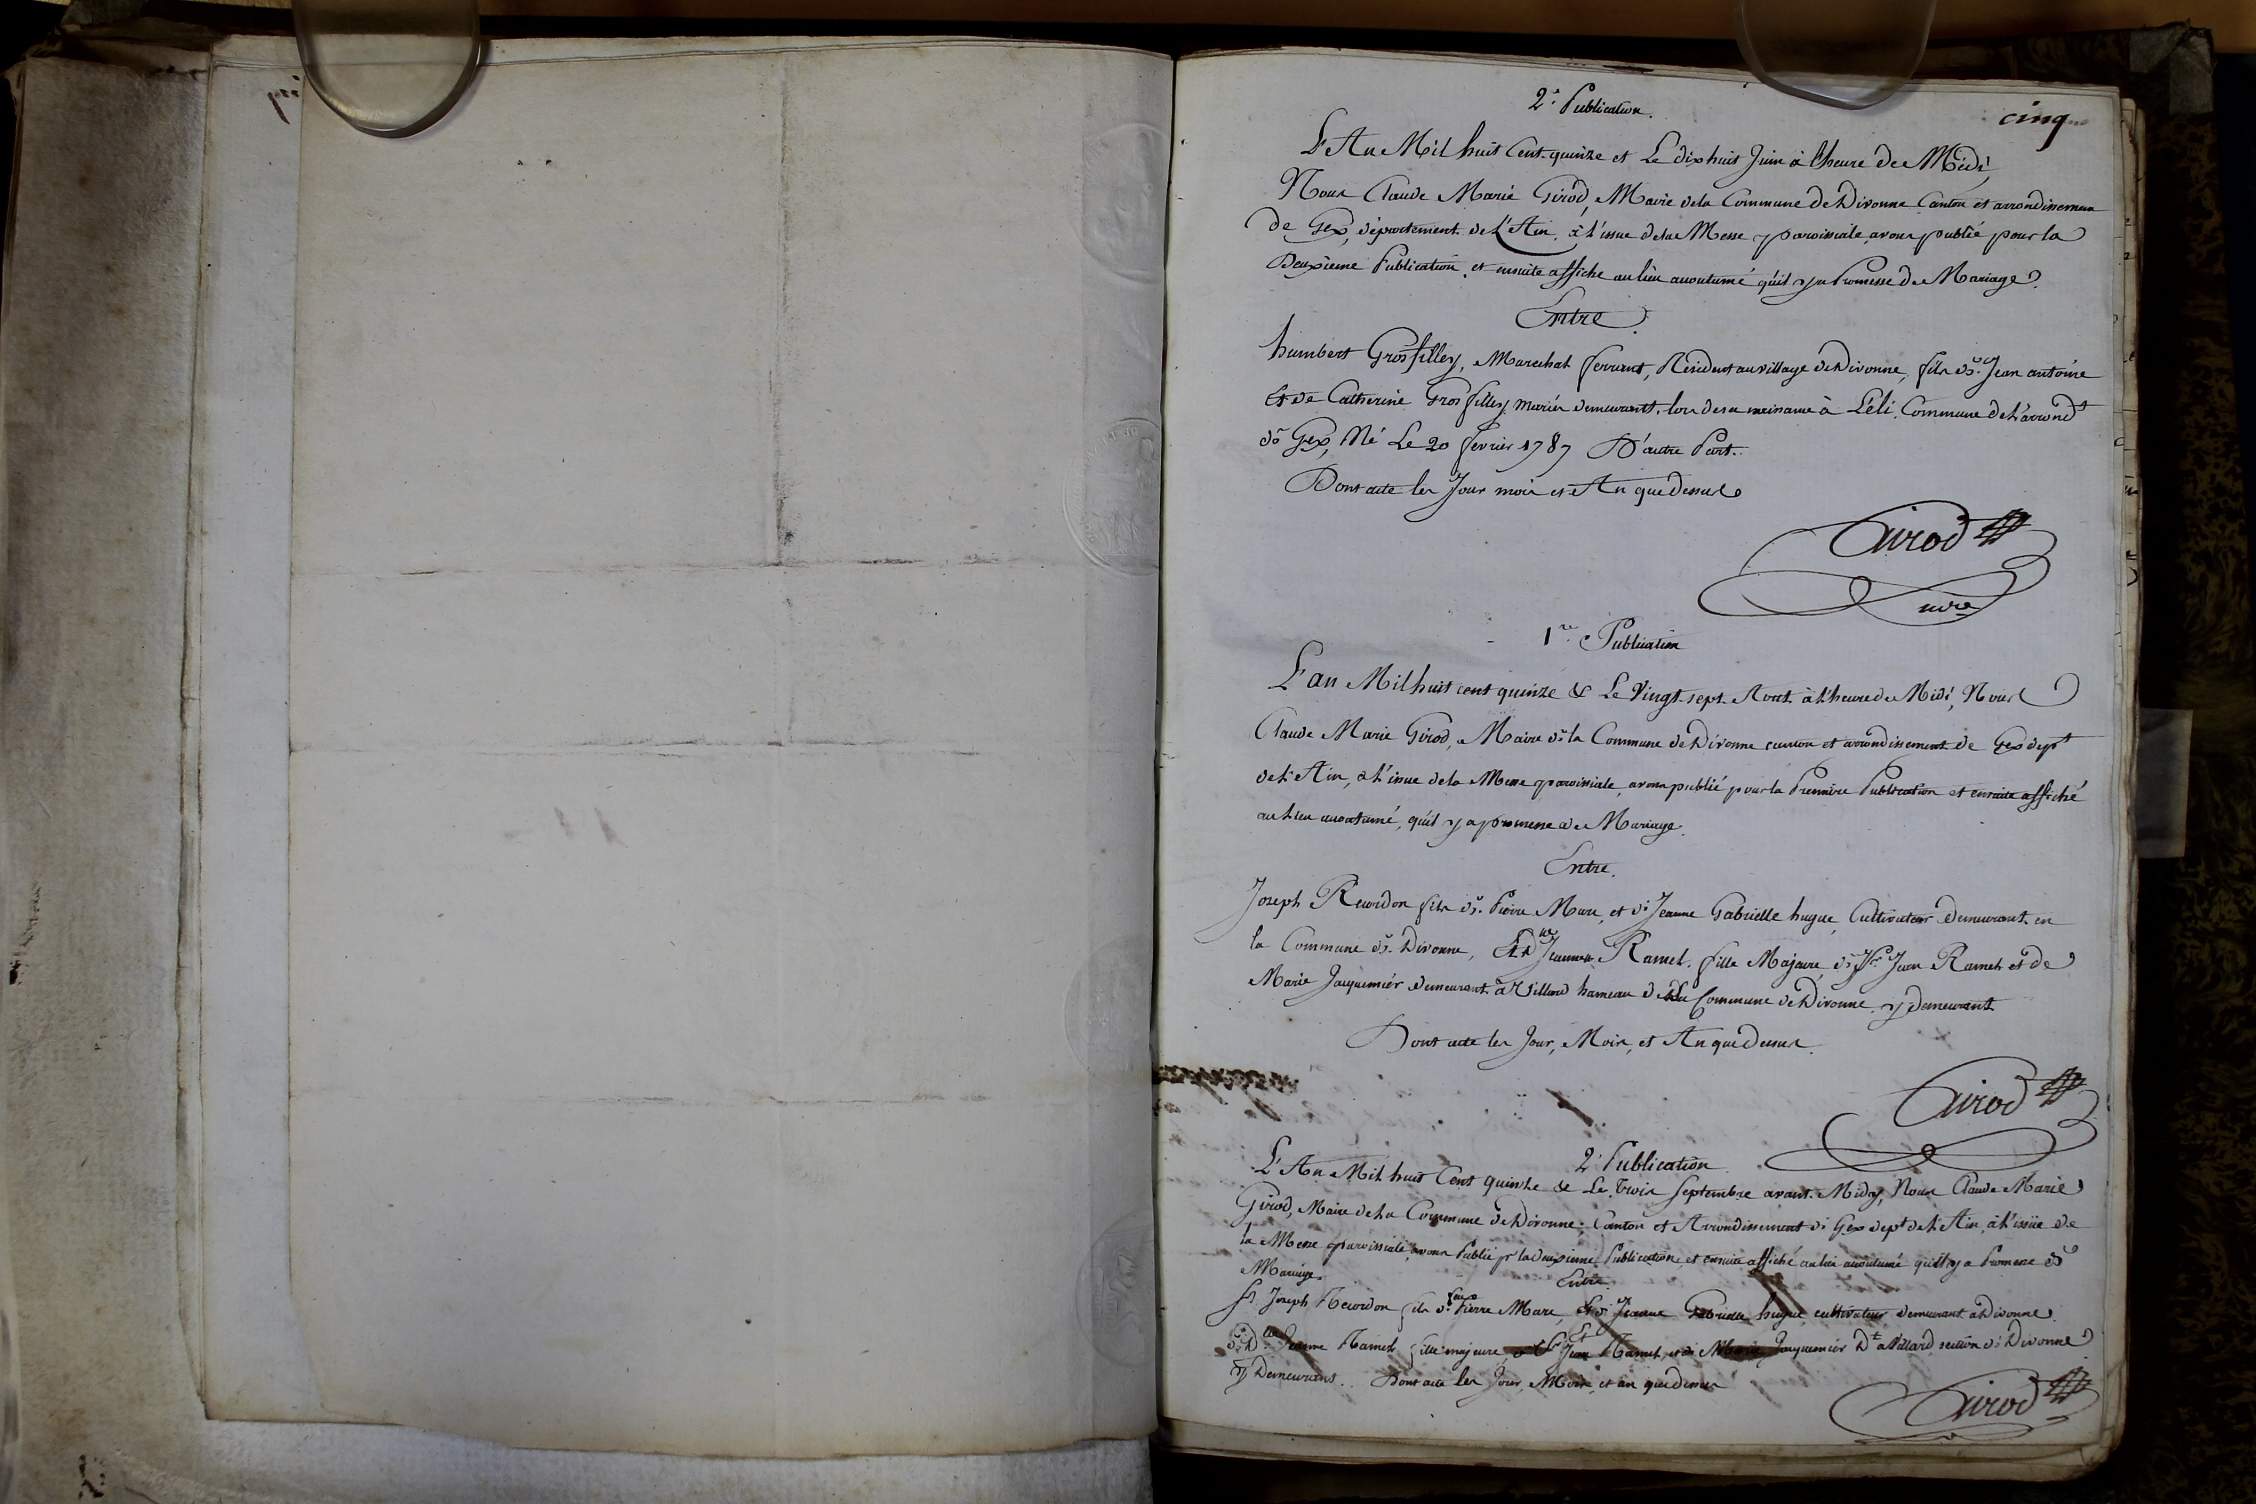 2e. Publication.
cinq
L'An Mil huit Cent quinze et Le dix huit Juin à l'heure de Midi,
Nous Claude Marie Girod, Maire de la Commune de Divonne Canton et arrondissement
de Gex, département de L'Ain, à l'issue de la Messe paroissiale, avons publié pour la
Deuxième Publication, et ensuite affiché au lieu accoutumé qu'il y a Promesse de Mariage.
Entre
humbert Grosfilley, Marechal ferrant, Résident au village de Divonne, fils de Jean antoine
Et de Catherine Grosfilley, mariés demeurants, lors de sa naissance à Léli, Commune de L'arrondt
de Gex, Né Le 20 fevrier 1787 D'autre Part.
Dont acte les Jour mois et An que dessus
Girod
1re Publication
L'an Mil huit cent quinze & Le Vingt sept Aout à l'heure de Midi, Nous
Claude Marie Girod, Maire de la Commune de Divonne canton et arrondissement de Gex dept
de L'Ain, à l'issue de la Messe paroissiale, avons publié pour la Première Publication et ensuite affiché
au lieu accoutumé, qu'il y a promesse de Mariage.
Entre.
Joseph Recordon fils de Pierre Marc, et de Jeanne Gabrielle hugue, Cultivateur demeurant en
la Commune de Divonne, Et Dlle Jeanne Ramel, fille Majeure, de Sr Jean Ramel et de
Marie Jacquemiér demeurant à Villard hameau de la Commune de Divonne y demeurant
Dont acte les Jour, Mois, et An que dessus.
Girod
2e Publication
L'An Mil huit Cent quinze & Le Trois Septembre avant Midy, Nous Claude Marie
Girod, Maire de la Commune de Divonne, Canton et Arrondissement de Gex dept de L'Ain, à L'issüe de
la Messe paroissiale, avons Publié pr la deuxieme Publication, et ensuite affiché au lieu accoutumé qu'il y a Promesse de
Mariage.
Entre
Sr Joseph Recordon fils de feu Pierre Marc, Et de Jeanne Gabrielle hugue, cultivateur demeurant à Divonne.
Dlle Jeanne Ramel fille majeure, Jean Ramel, et de Marie Jacquemier Dt a Villard, section de Divonne
y Demeurans. Dont acte les Jour, Mois, et an que dessus
Girod